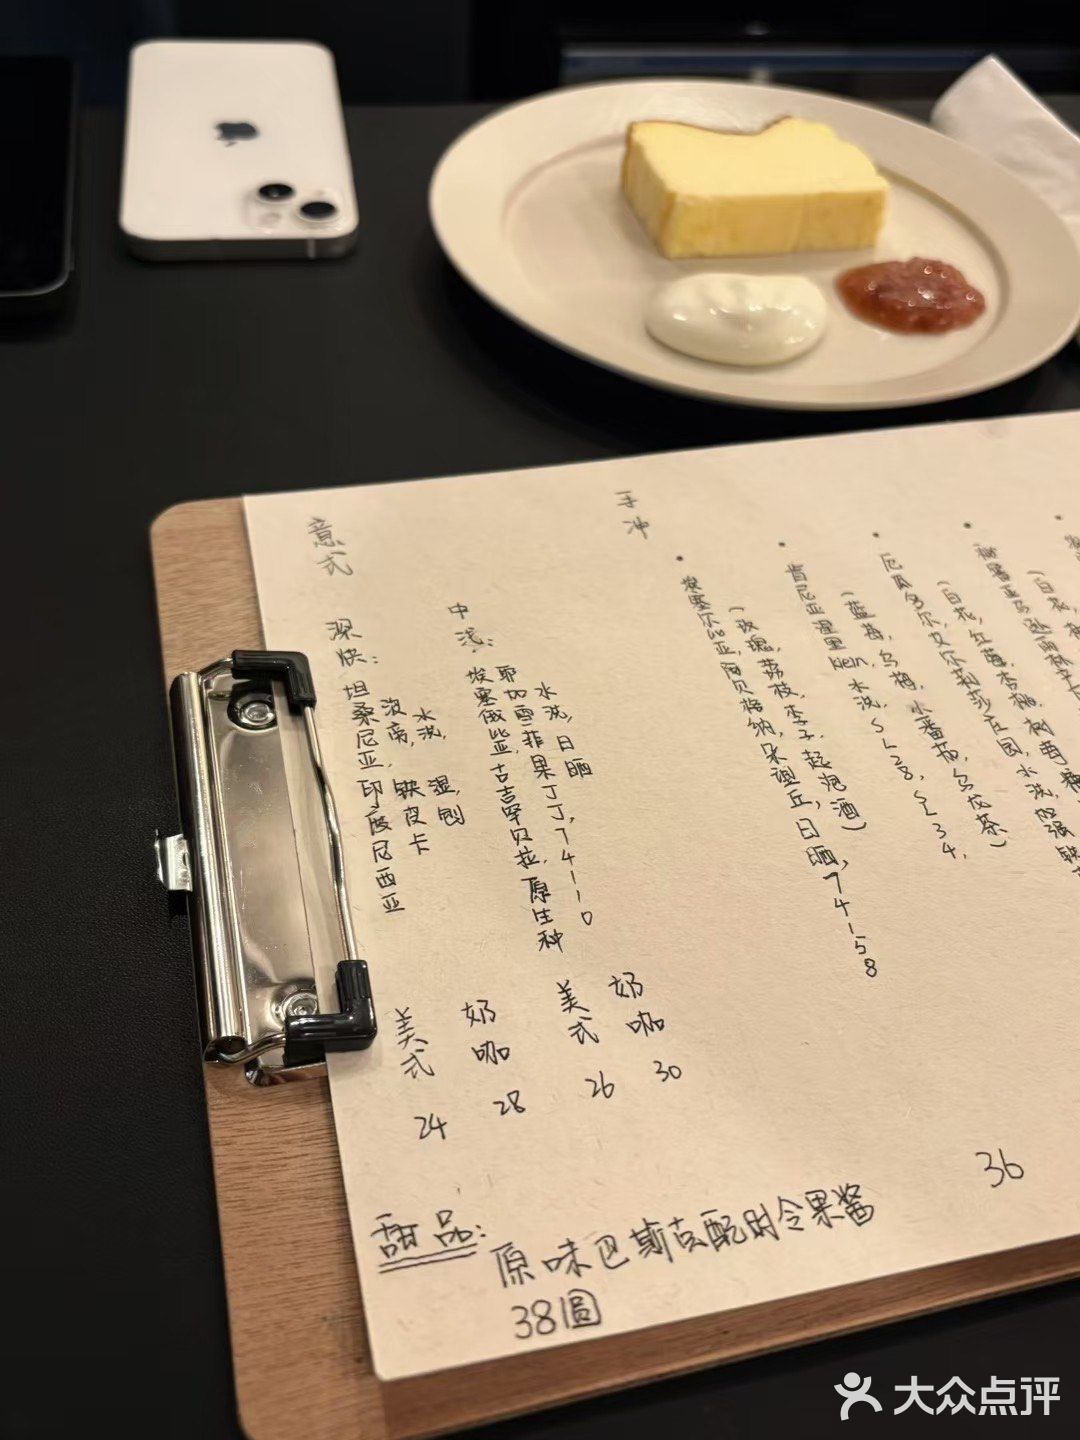 意式
深烘:
坦桑尼亚,印度尼西亚
波旁, 铁皮卡
水洗, 湿刨
美式 24
奶咖 28
中浅:
埃塞俄比亚,吉吉罕贝拉,原生种
耶加雪菲果丁丁,74110
水洗,日晒
美式 26
奶咖 30
手冲
埃塞尔比亚,阿贝格纳,朵祖丘,日晒,74158
(玫瑰,荔枝,李子,起泡酒)
肯尼亚,水洗,SL28,SL34,
(蓝莓,乌梅,小番茄,乌龙茶)
厄瓜多尔,艾尔莉莎庄园,水洗,加强
36
甜品:
原味巴斯克配时令果酱
38圆
大众点评